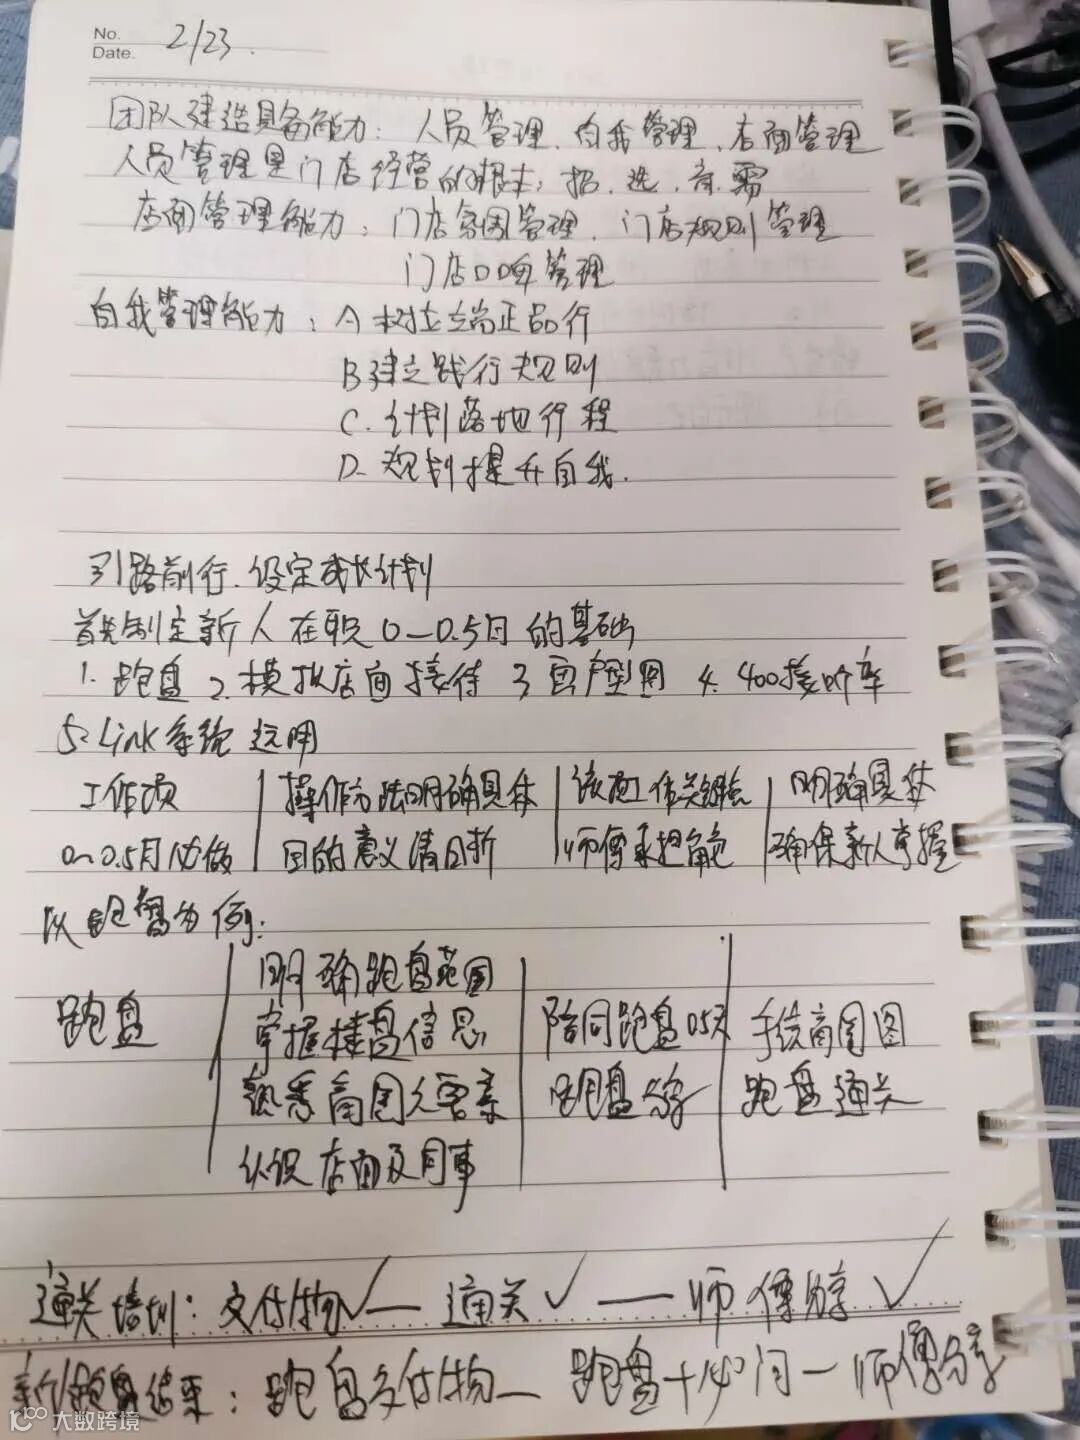 No.
Date. 2/23.
团队建造具备能力：人员管理、自我管理、店面管理
人员管理是门店经营的根本：招、选、育、需
店面管理能力：门店氛围管理、门店规则管理
门店口碑管理
自我管理能力：A 树立端正品行
B 建立践行规则
C. 计划落地行程
D. 规划提升自我.
引路前行.设定成长计划
首先制定新人在职0—0.5月的基础
1. 跑盘 2. 模拟店面接待 3 画户型图 4. 400接听率
5. Link系统运用
工作项 操作方法明确具体 该项工作关键点 明确具体
0~0.5月必做 目的意义清晰 师傅承担角色 确保新人掌握
以跑盘为例：
明确跑盘范围
跑盘 掌握楼盘信息 陪同跑盘0.5天 手绘商圈图
熟悉商圈 要素 跑盘 跑盘通关
认识店面及同事
通关培训：交付物✓— 通关✓ — 师傅 ✓
跑盘结果：跑盘交付物— 跑盘+ 问—师傅分享
大数跨境